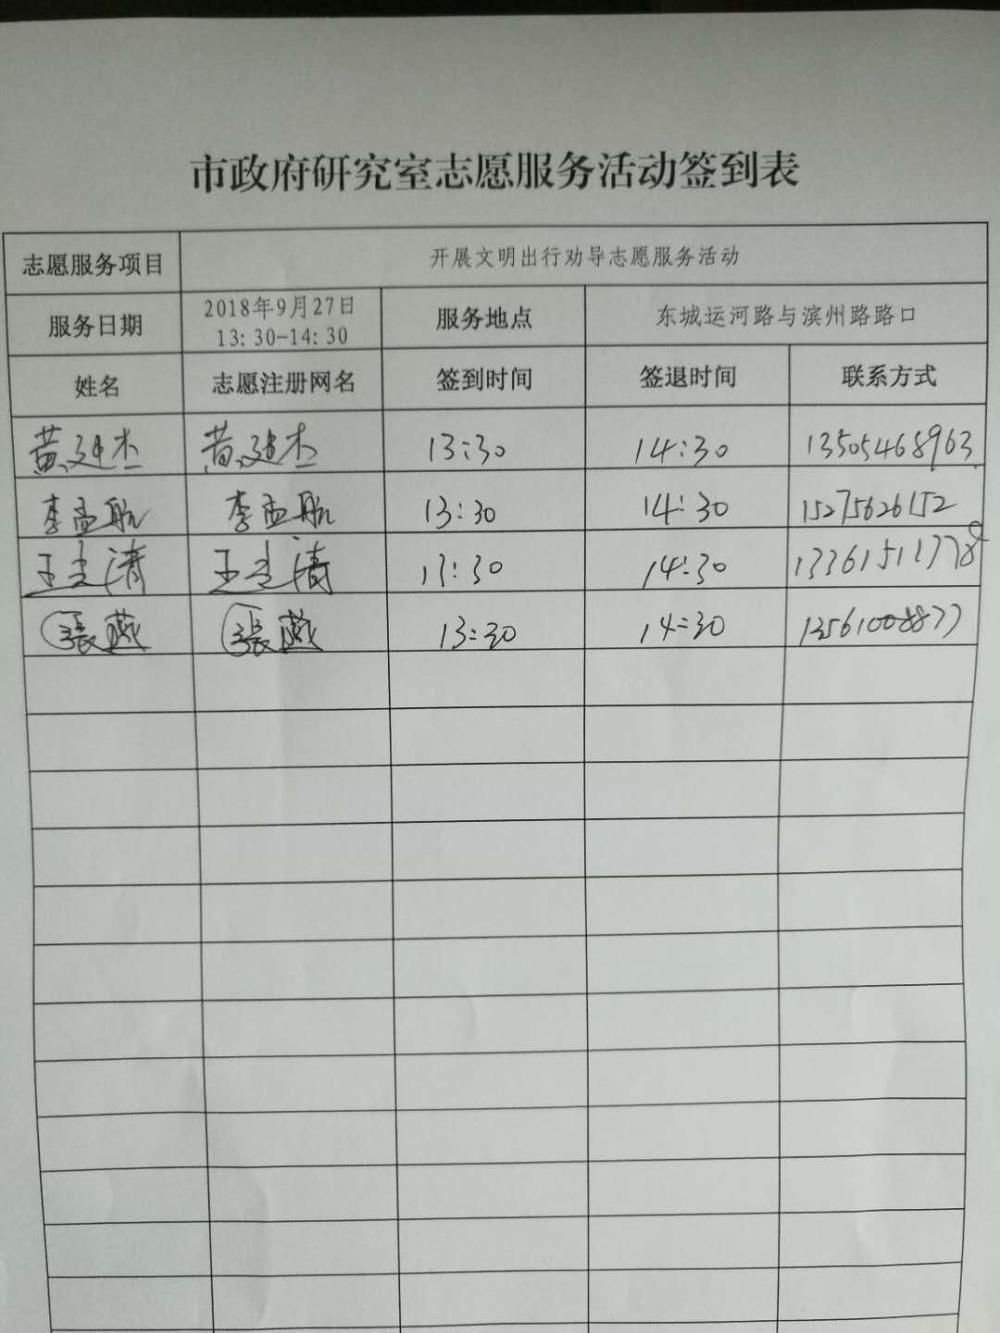 市政府研究室志愿服务活动签到表
志愿服务项目 开展文明出行劝导志愿服务活动
服务日期 2018年9月27日 13:30-14:30 服务地点 东城运河路与滨州路路口
姓名 志愿注册网名 签到时间 签退时间 联系方式
黄建杰 黄建杰 13:30 14:30 13505468963
李孟航 李孟航 13:30 14:30 15275626152
王立清 王立清 13:30 14:30 13361511778
張燕 張燕 13:30 14:30 13561008877